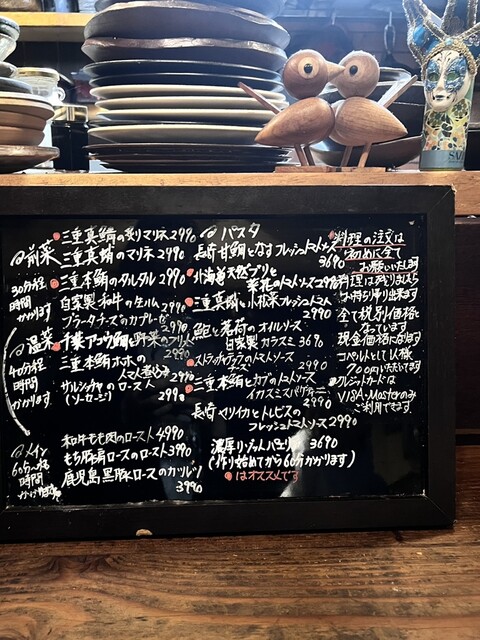 @前菜
30分程
時間
かかります
三重真鯛のマリネ 2990
三重真鯛のマリネ 2490
三重本鮪のタルタル 2990
自家製和牛の生ハム 2990
ブラータチーズのカプレーゼ 2990
@温菜
40分程
時間
かかります
三重本鮪ホホの
煮込み 2990
サルシッチャのロースト
(ソーセージ) 2990
@メイン
60分〜程
時間
かかります
和牛もも肉のロースト 4990
もち豚肩ロースのロースト 3990
鹿児島黒豚ロースのカツレツ
3990
@パスタ
長崎甘鯛となすフレッシュトマトソース
3690
北海道天然ブリと
菜花のトマトソース 2990
三重真鯛と小松菜フレッシュトマト
2990
鮑と茗荷のオイルソース
自家製カラスミ 3690
ストラッチャテッラのトマトソース
2990
三重本鮪とカブのトマトソース
イカスミスパゲティーニ
2990
長崎マリイカとトレビスの
フレッシュトマトソース 2990
濃厚 3690
(作り始めてから60分かかります)
●はオススメです
料理の注文は
初めに全て
お願いいたします
料理は残りましたら
お持ち帰り出来ます
全て税別価格と
なっています
現金価格になります
コペルトとして1人様
700円いただいてます
クレジットカードは
VISA・Masterのみ
ご利用できます